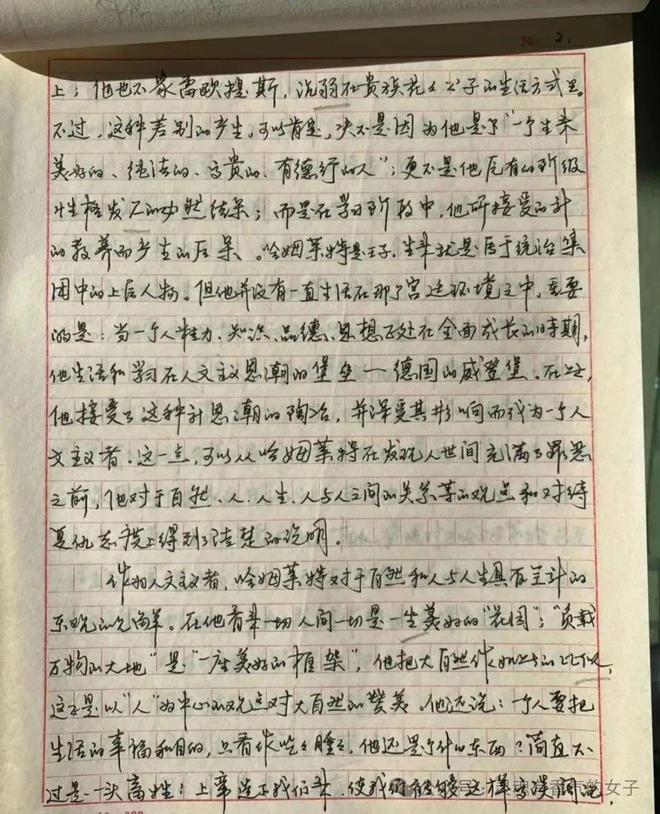 2.
上；他也不象雷欧提斯，沉弱在贵族花花公子的生活方式里。
不过，这种差别的产生，可以肯定，决不是因为他是个"一个生来
美好的、纯洁的、高贵的、有德行的人"；更不是他固有的阶级
性格发展的必然结果；而是在学习阶段中，他所接受的新
的教养而产生的后果。哈姆莱特是王子，生来就是属于统治集
团中的上层人物。但他并没有一直生活在那个宫廷环境之中，重要
的是：当一个人精力、知识、品德、思想正处在全面成长的时期，
他生活和学习在人文主义思潮的堡垒——德国的威登堡。在这里，
他接受了这种新思潮的陶冶，并深受其影响而成为一个人
文主义者。这一点，可以从哈姆莱特在发现人世间充满了罪恶
之前，他对于自然、人、人生、人与人之间的关系等的观点和对待
复仇态度上得到了清楚的说明。
作为人文主义者，哈姆莱特对于自然和人与人生具有全新的
乐观的见解。在他看来一切人间一切是一生美好的"花园"；"负载
万物的大地"是"一座美好的框架"，他把大自然作如此的比拟，
这正是以"人"为中心的观点对大自然的赞美。他还说：一个人要把
生活的幸福和目的，只看作吃吃睡睡，他还是个什么东西？简直不
过是一头畜生！上帝造下我们来，使我们能够这样高谈阔论，
香京的女子